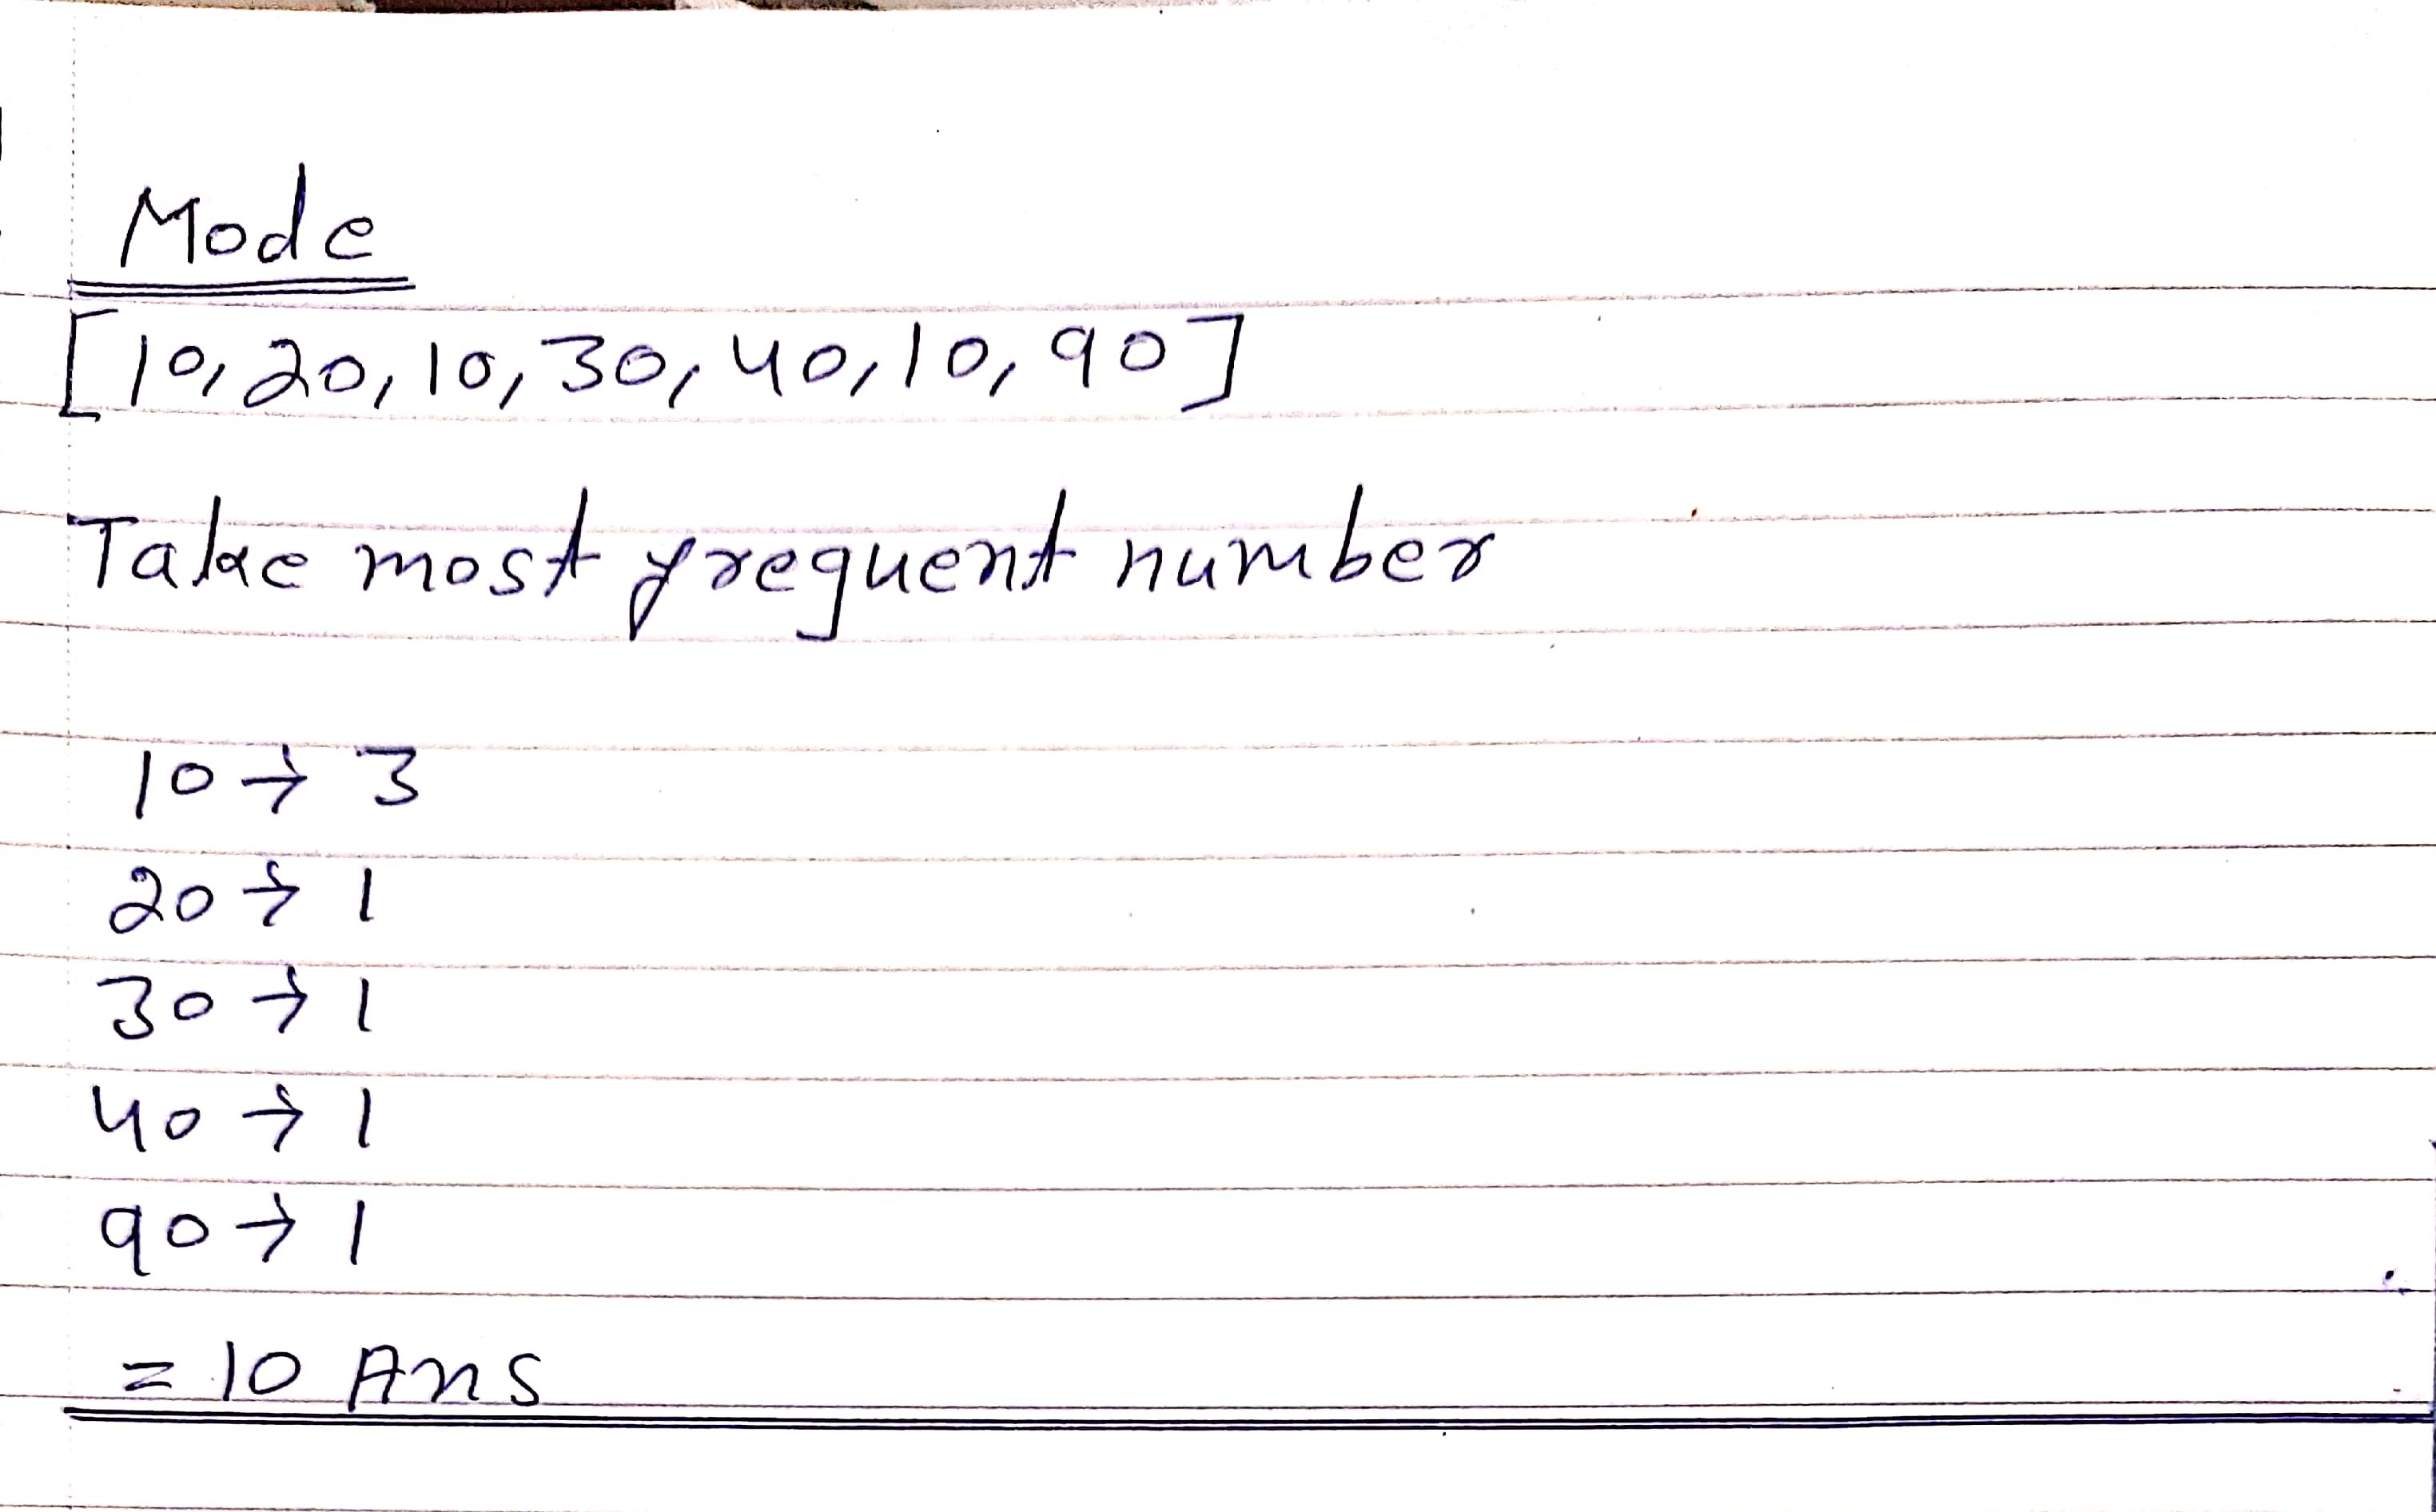 Mode
[10, 20, 10, 30, 40, 10, 90]
Take most frequent number
10 → 3
20 → 1
30 → 1
40 → 1
90 → 1
= 10 Ans